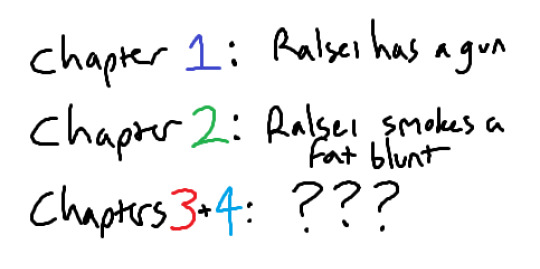 Chapter 1: Ralsei has a gun
Chapter 2: Ralsei smokes a
fat blunt
Chapters 3+4: ???